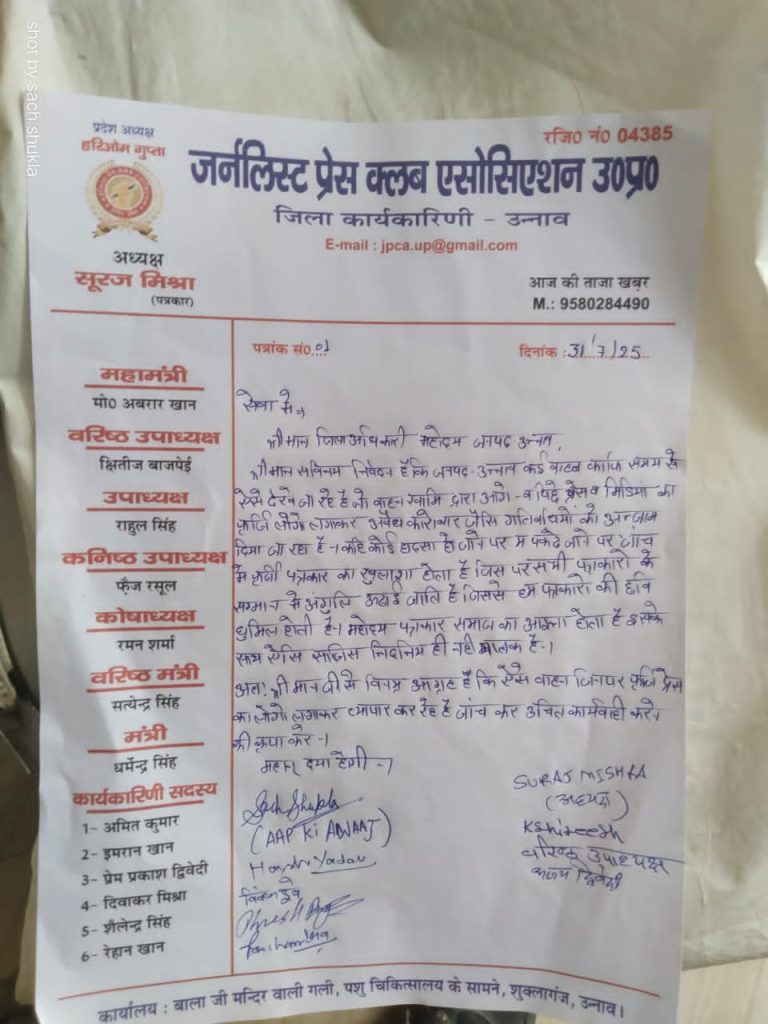 shot by sach shukla
प्रदेश अध्यक्ष
हरिओम गुप्ता
रजि0 नं0 04385
जर्नलिस्ट प्रेस क्लब एसोसिएशन उ0प्र0
जिला कार्यकारिणी - उन्नाव
E-mail : jpca.up@gmail.com
अध्यक्ष
सूरज मिश्रा
(पत्रकार)
आज की ताजा खबर
M.: 9580284490
पत्रांक सं0...01
दिनांक :.31/7/25...
महामंत्री
मो0 अबरार खान
वरिष्ठ उपाध्यक्ष
क्षितीज बाजपेई
उपाध्यक्ष
राहुल सिंह
कनिष्ठ उपाध्यक्ष
फैज रसूल
कोषाध्यक्ष
रमन शर्मा
वरिष्ठ मंत्री
सत्येन्द्र सिंह
मंत्री
धर्मेन्द्र सिंह
कार्यकारिणी सदस्य
1- अमित कुमार
2- इमरान खान
3- प्रेम प्रकाश द्विवेदी
4- दिवाकर मिश्रा
5- शैलेन्द्र सिंह
6- रेहान खान
सेवा में,
श्री मान जिलाअधिकारी महोदय जनपद उन्नाव,
श्री मान सविनय निवेदन है कि जनपद उन्नाव कई वाहन काफि समय से
ऐसे देखे जा रहे है जो वाहन स्वामि द्वारा आगे व पिछे प्रेस व मिडिया का
फर्जि लोगो लगाकर अवैध कारोबार जैसि गतिविधियों को अन्जाम
दिया जा रहा है। कहि कोई हादसा हो जाने पर या पकडे जाने पर जांच
में फर्जी पत्रकार का खुलाशा होता है जिस पर सभी पत्रकारो के
सम्मान मे अंगुलि उठाई जाति है जिससे हम पत्रकारो की छवि
धुमिल होती है। महोदय पत्रकार समाज का आइना होता है इसके
साथ ऐसि साजिस निदंनिय ही नही घातक है।
अतः श्री मान जी से विनम्र आग्रह है कि ऐसे वाहन जिनपर फर्जि प्रेस
का लोगो लगाकर व्यापार कर रहे है जांच कर उचित कार्यवाही करने
की कृपा करे।
महान दया होगी।
Sach Shukla
(AAP KI AWAAJ)
SURAJ MISHRA
(अध्यक्ष)
Kshiteesh
वरिष्ठ उपाध्यक्ष
कार्यालय : बाला जी मन्दिर वाली गली, पशु चिकित्सालय के सामने, शुक्लागंज, उन्नाव।